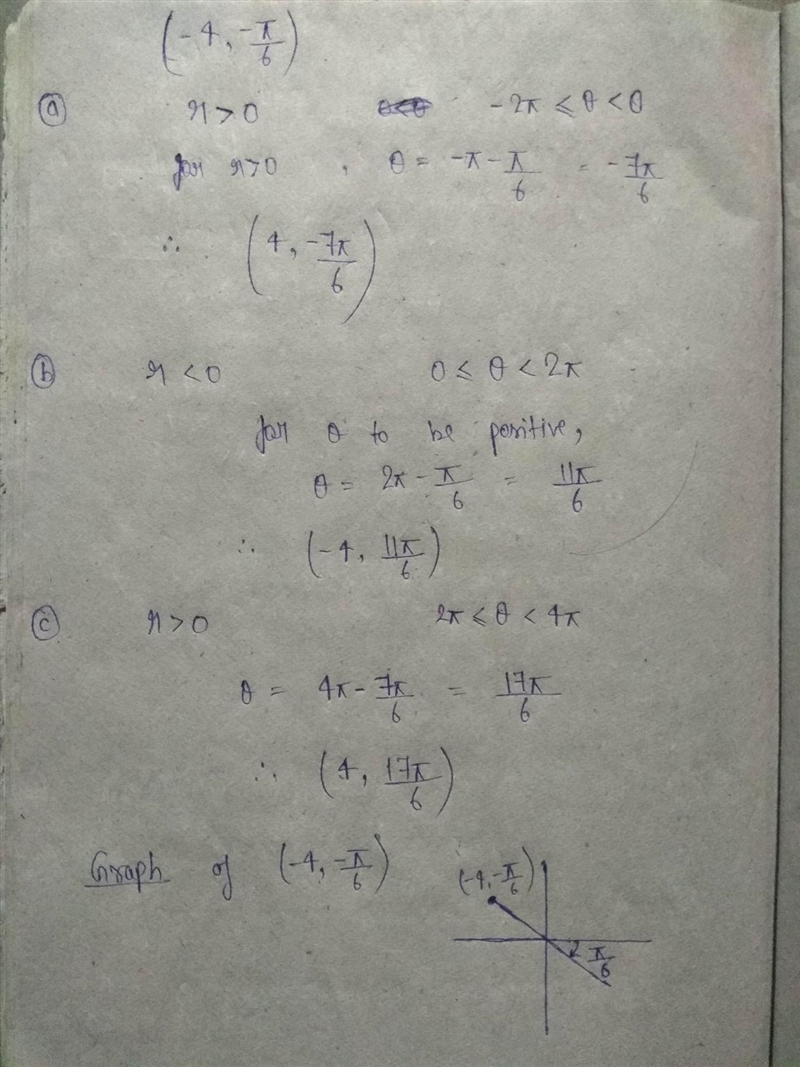 (-4, -π/6)
ⓐ r > 0 -2π ≤ θ < 0
for r > 0 , θ = -π - π/6 = -7π/6
∴ (4, -7π/6)
ⓑ r < 0 0 ≤ θ < 2π
for θ to be positive,
θ = 2π - π/6 = 11π/6
∴ (-4, 11π/6)
ⓒ r > 0 2π ≤ θ < 4π
θ = 4π - 7π/6 = 17π/6
∴ (4, 17π/6)
Graph of (-4, -π/6)
(-4, -π/6)
π/6